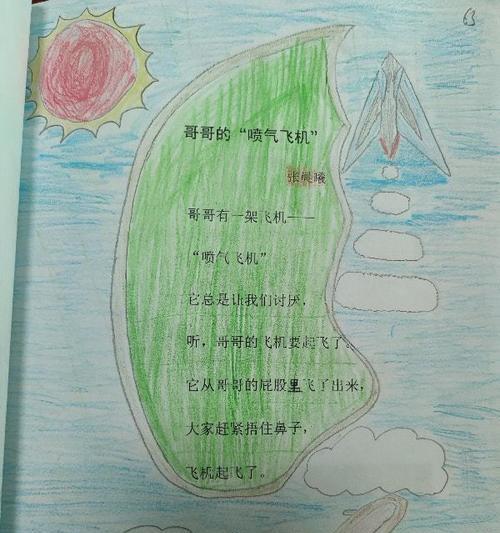 63
哥哥的“喷气飞机”
张 曦
哥哥有一架飞机——
“喷气飞机”
它总是让我们讨厌，
听，哥哥的飞机要起飞了。
它从哥哥的屁股里飞了出来，
大家赶紧捂住鼻子，
飞机起飞了。